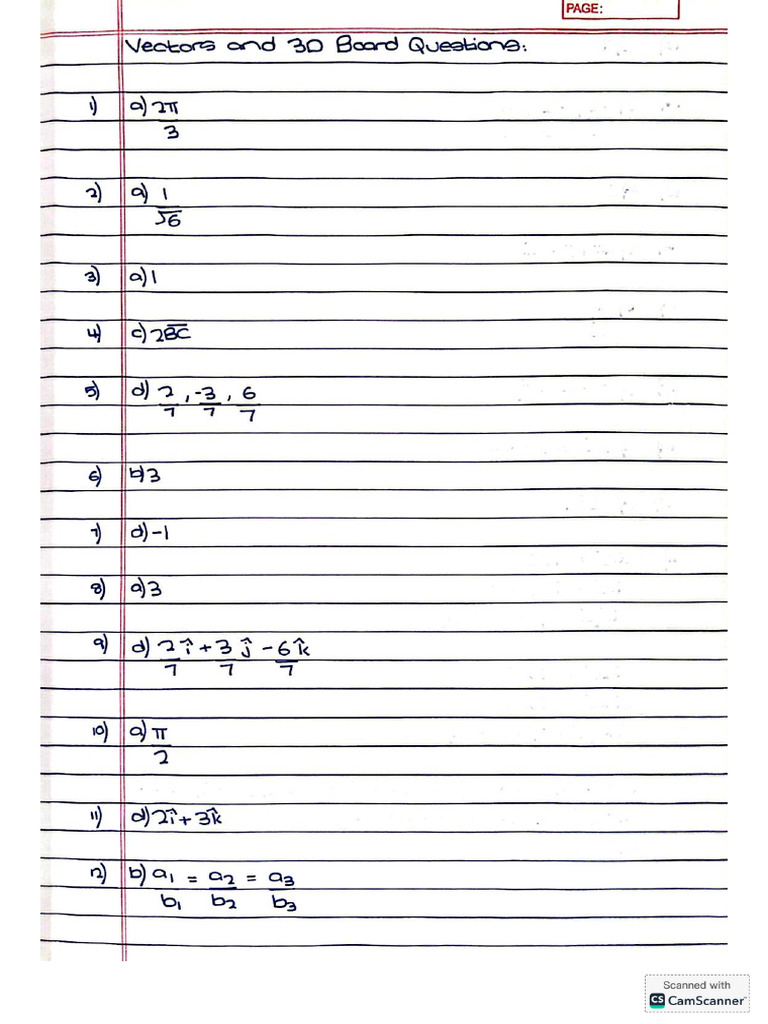 PAGE:
Vectors and 3D Board Questions:
1) a) 2π/3
2) a) 1/√6
3) a) 1
4) c) 2B̅C̅
5) d) 2/7, -3/7, 6/7
6) b) 3
7) d) -1
8) a) 3
9) d) 2/7 î + 3/7 ĵ - 6/7 k̂
10) a) π/2
11) d) 2î + 3k̂
12) b) a₁/b₁ = a₂/b₂ = a₃/b₃
Scanned with
CS CamScanner